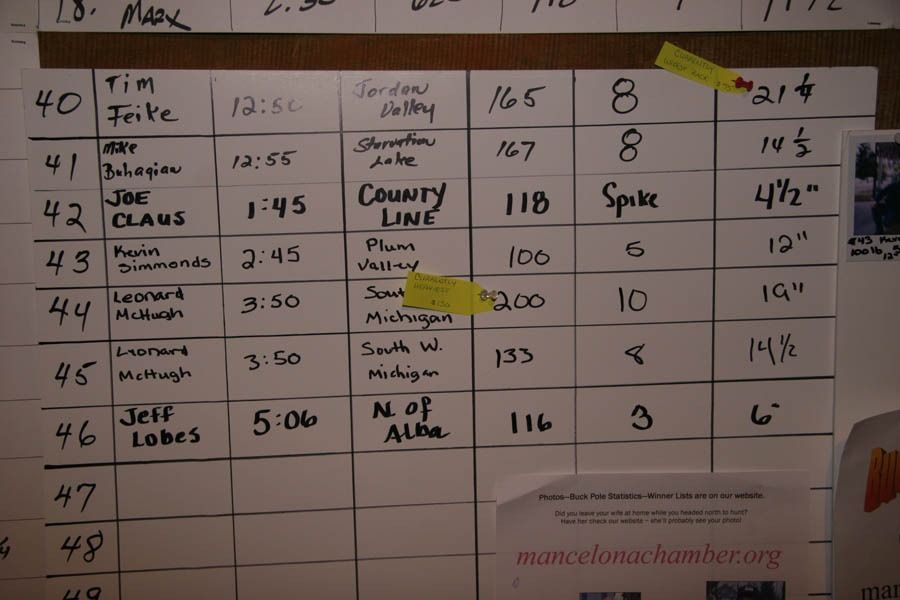 18. MARX
40 Tim Feike 12:50 Jordan Valley 165 8 21 1/4
CURRENTLY WIDEST RACK
41 Mike Buhagian 12:55 Starvation Lake 167 8 14 1/2
42 JOE CLAUS 1:45 COUNTY LINE 118 Spike 4 1/2"
43 Kevin Simmonds 2:45 Plum Valley 100 5 12"
44 Leonard McHugh 3:50 Sout Michigan 200 10 19"
CURRENTLY HEAVIEST $150
45 Leonard McHugh 3:50 South W. Michigan 133 8 14 1/2
46 Jeff Lobes 5:06 N. of Alba 116 3 6"
47
48
49
Photos—Buck Pole Statistics—Winner Lists are on our website.
Did you leave your wife at home while you headed north to hunt?
Have her check our website – she'll probably see your photo!
mancelonachamber.org
#43
100 lb
man